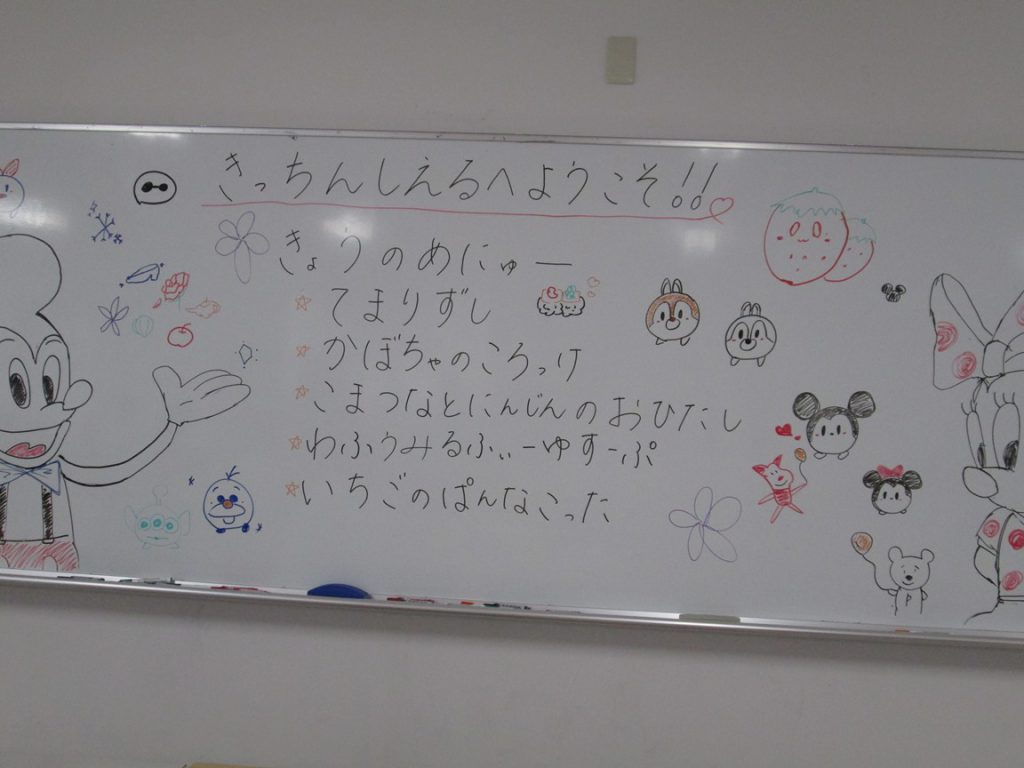 きっちんしえるへようこそ!!
きょうのめにゅー
てまりずし
かぼちゃのころっけ
こまつなとにんじんのおひたし
わふうみるふぃーゆすーぷ
いちごのぱんなこった